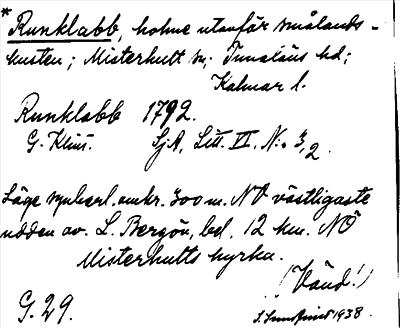 * Runklabb, holme utanför smålands-
kusten; Misterhult sn; Tunaläns hd;
Kalmar l.
Runklabb 1792.
G. Klint. SjA, Litt. VI. No 3,2.
Läge synberl. omkr. 300 m. NV västligaste
udden av L. Bergön, bel. 12 km. NÖ
Misterhults kyrka.
(Vänd!)
G. 29.
1938.